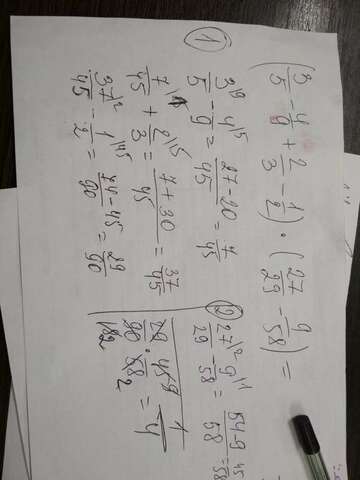 (3/5 - 4/9 + 2/3 - 1/2) · (27/29 - 9/58) =
①
3\9/5 - 4\5/9 = 27-20/45 = 7/45
7\1/45 + 2\15/3 = 7+30/45 = 37/45
37\2/45 - 1\45/2 = 74-45/90 = 29/90
②
27\2/29 - 9\1/58 = 54-9/58 = 45/58
29/90 · 45/58 = 1/4